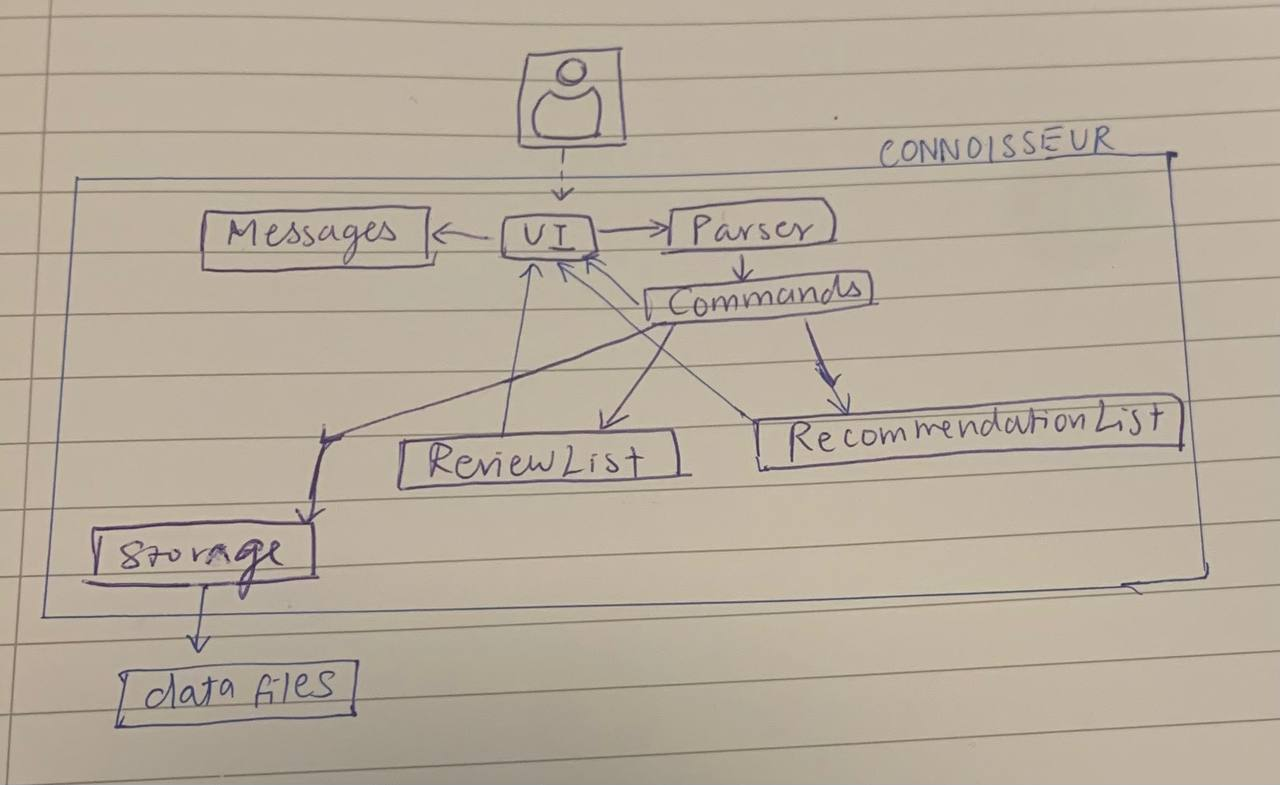 CONNOISSEUR
Messages
UI
Parser
Commands
ReviewList
RecommendationList
Storage
data files